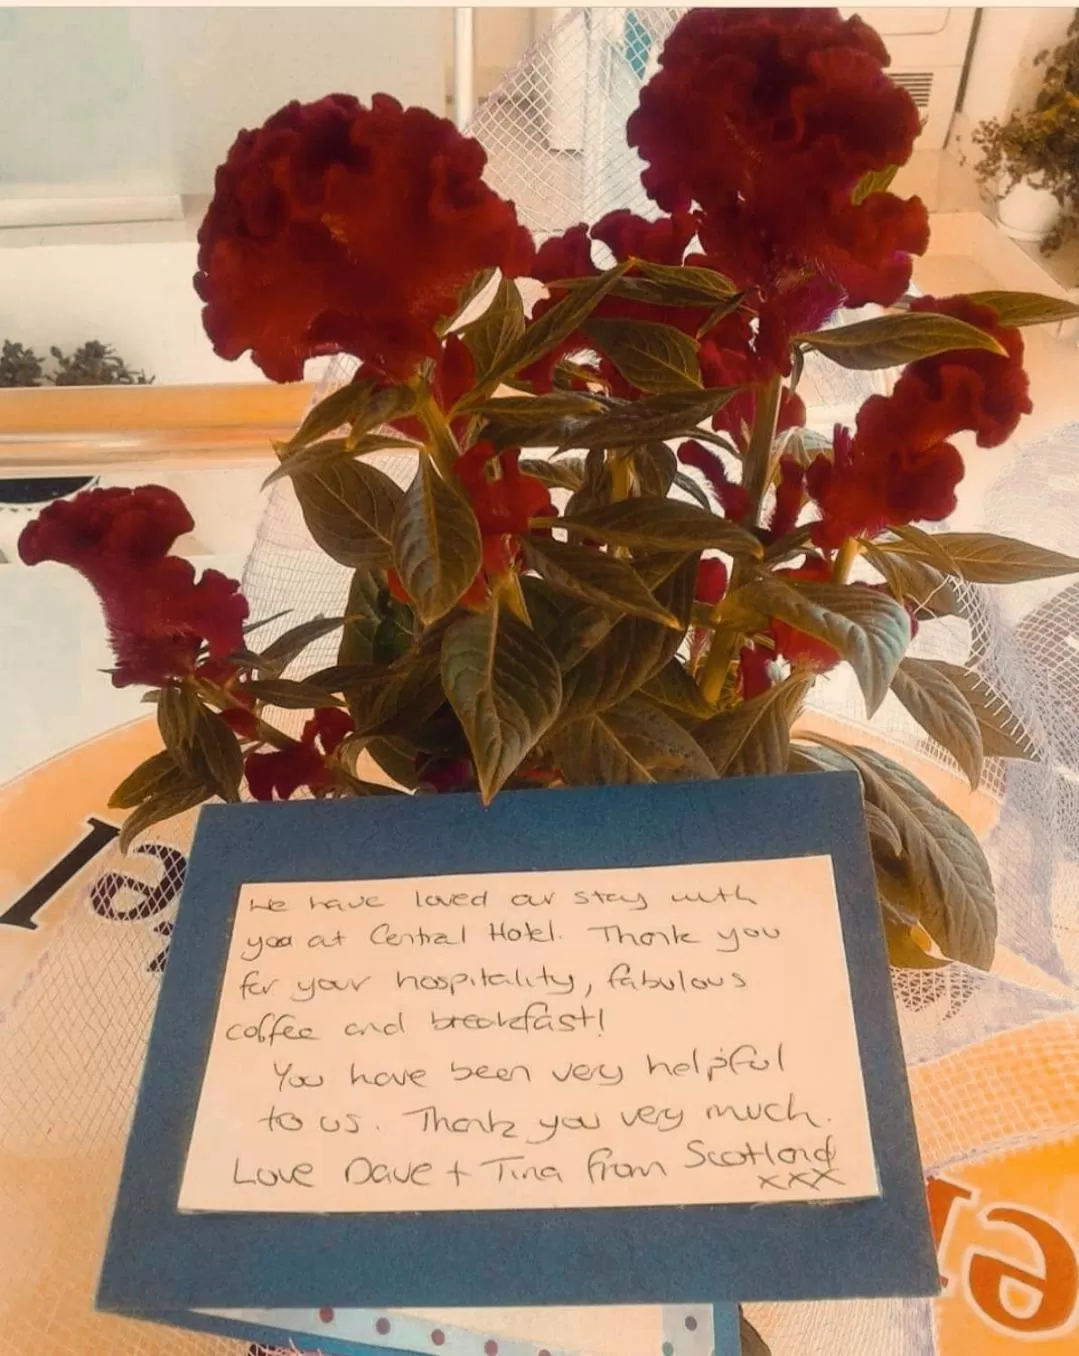 We have loved our stay with
you at Central Hotel. Thank you
for your hospitality, fabulous
coffee and breakfast!
You have been very helpful
to us. Thank you very much.
Love Dave + Tina from Scotland
xxx